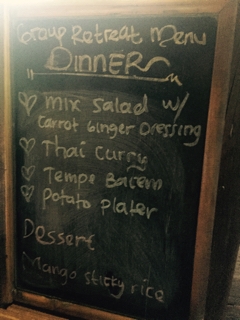 Group Retreat Menu
DINNER
mix salad w/
Carrot Ginger Dressing
Thai Curry
Tempe Bacem
Potato Plater
Dessert
Mango sticky rice